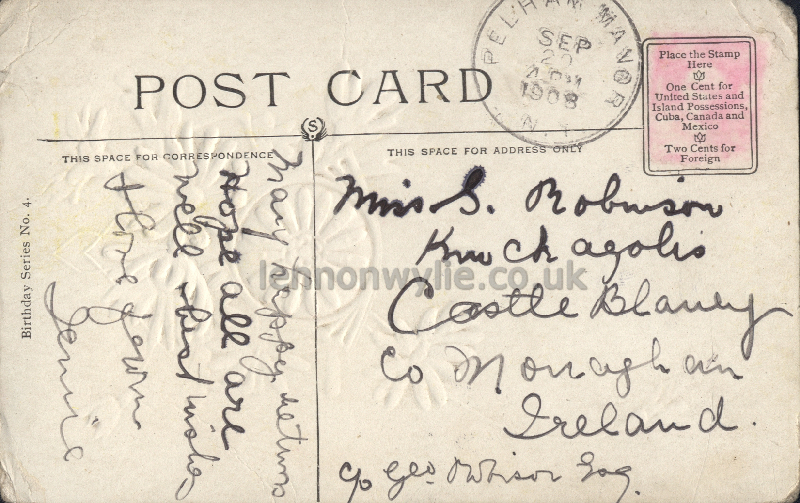 POST CARD
PELHAM MANOR
SEP
20
4 PM
1908
N.Y.
Place the Stamp
Here
One Cent for
United States and
Island Possessions,
Cuba, Canada and
Mexico
Two Cents for
Foreign
S
THIS SPACE FOR CORRESPONDENCE
THIS SPACE FOR ADDRESS ONLY
Birthday Series No. 4.
Many happy returns
Hope all are
well & best wishes
Jennie
Miss G. Robinson
Knockagolis
Castle Blaney
Co Monaghan
Ireland.
c/o Geo Robison Esq.
lennonwylie.co.uk